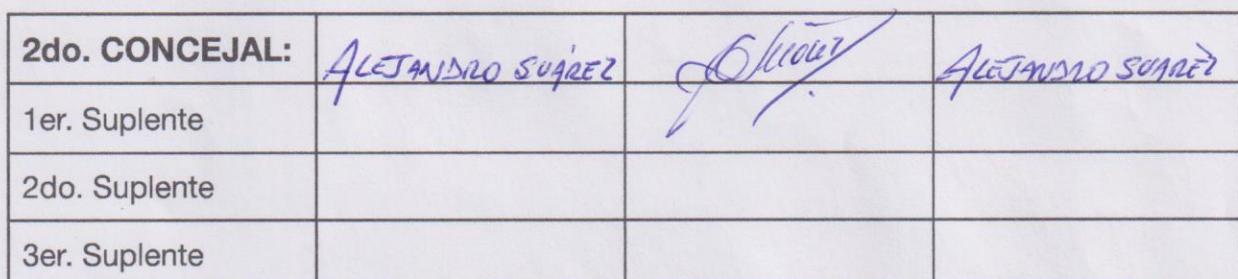 2do. CONCEJAL: ALEJANDRO SUÁREZ ALEJANDRO SUÁREZ
1er. Suplente
2do. Suplente
3er. Suplente